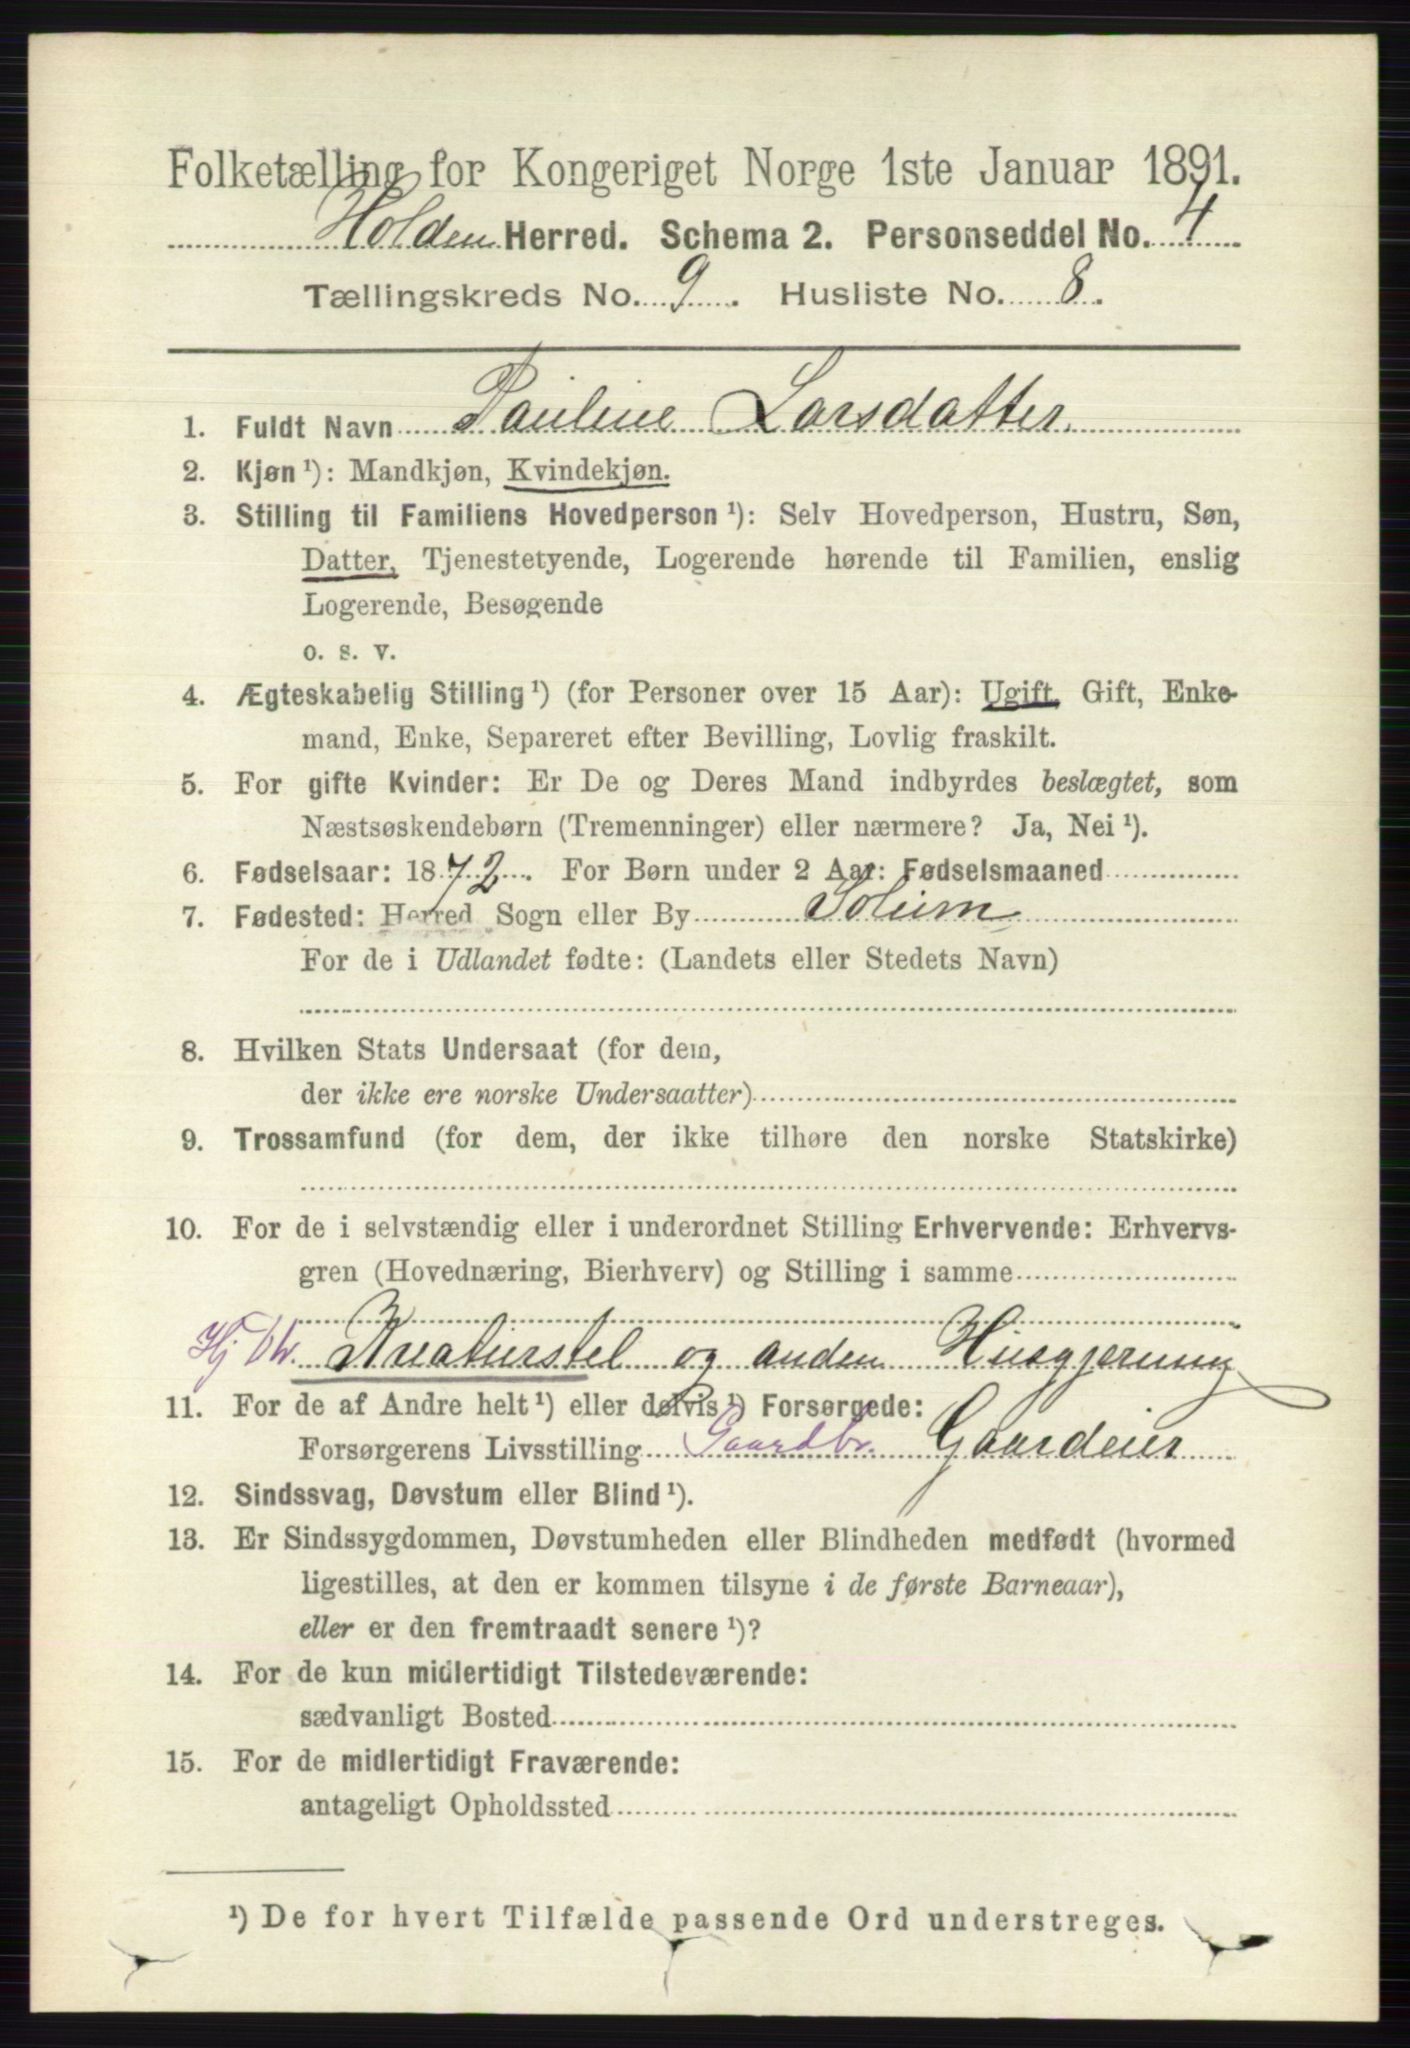 Folketælling for Kongeriget Norge 1ste Januar 1891.
Holden Herred. Schema 2. Personseddel No. 4
Tællingskreds No. 9. Husliste No. 8.
1. Fuldt Navn Pauline Larsdatter.
2. Kjøn ¹): Mandkjøn, Kvindekjøn.
3. Stilling til Familiens Hovedperson ¹): Selv Hovedperson, Hustru, Søn,
Datter, Tjenestetyende, Logerende hørende til Familien, enslig
Logerende, Besøgende
o. s. v.
4. Ægteskabelig Stilling ¹) (for Personer over 15 Aar): Ugift, Gift, Enke-
mand, Enke, Separeret efter Bevilling, Lovlig fraskilt.
5. For gifte Kvinder: Er De og Deres Mand indbyrdes beslægtet, som
Næstsøskendebørn (Tremenninger) eller nærmere? Ja, Nei ¹).
6. Fødselsaar: 1872. For Børn under 2 Aar: Fødselsmaaned
7. Fødested: Herred, Sogn eller By Solum
For de i Udlandet fødte: (Landets eller Stedets Navn)
8. Hvilken Stats Undersaat (for dem,
der ikke ere norske Undersaatter)
9. Trossamfund (for dem, der ikke tilhøre den norske Statskirke)
10. For de i selvstændig eller i underordnet Stilling Erhvervende: Erhvervs-
gren (Hovednæring, Bierhverv) og Stilling i samme
Hj Kreaturstel og anden Husgjerning
11. For de af Andre helt ¹) eller delvis ¹) Forsørgede:
Forsørgerens Livsstilling Gaardbr. Gaardeier
12. Sindssvag, Døvstum eller Blind ¹).
13. Er Sindssygdommen, Døvstumheden eller Blindheden medfødt (hvormed
ligestilles, at den er kommen tilsyne i de første Barneaar),
eller er den fremtraadt senere ¹)?
14. For de kun midlertidigt Tilstedeværende:
sædvanligt Bosted
15. For de midlertidigt Fraværende:
antageligt Opholdssted
¹) De for hvert Tilfælde passende Ord understreges.